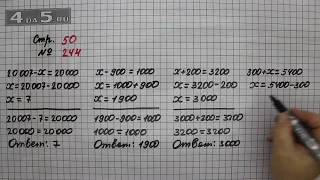 4DA5.RU
Стр. 50
№ 244
20007-x=20000
x=20007-20000
x=7
20007-7=20000
20000=20000
Ответ: 7
x-900=1000
x=1000+900
x=1900
1900-900=1000
1000=1000
Ответ: 1900
x+200=3200
x=3200-200
x=3000
3000+200=3200
3200=3200
Ответ: 3000
300+x=5400
x=5400-300